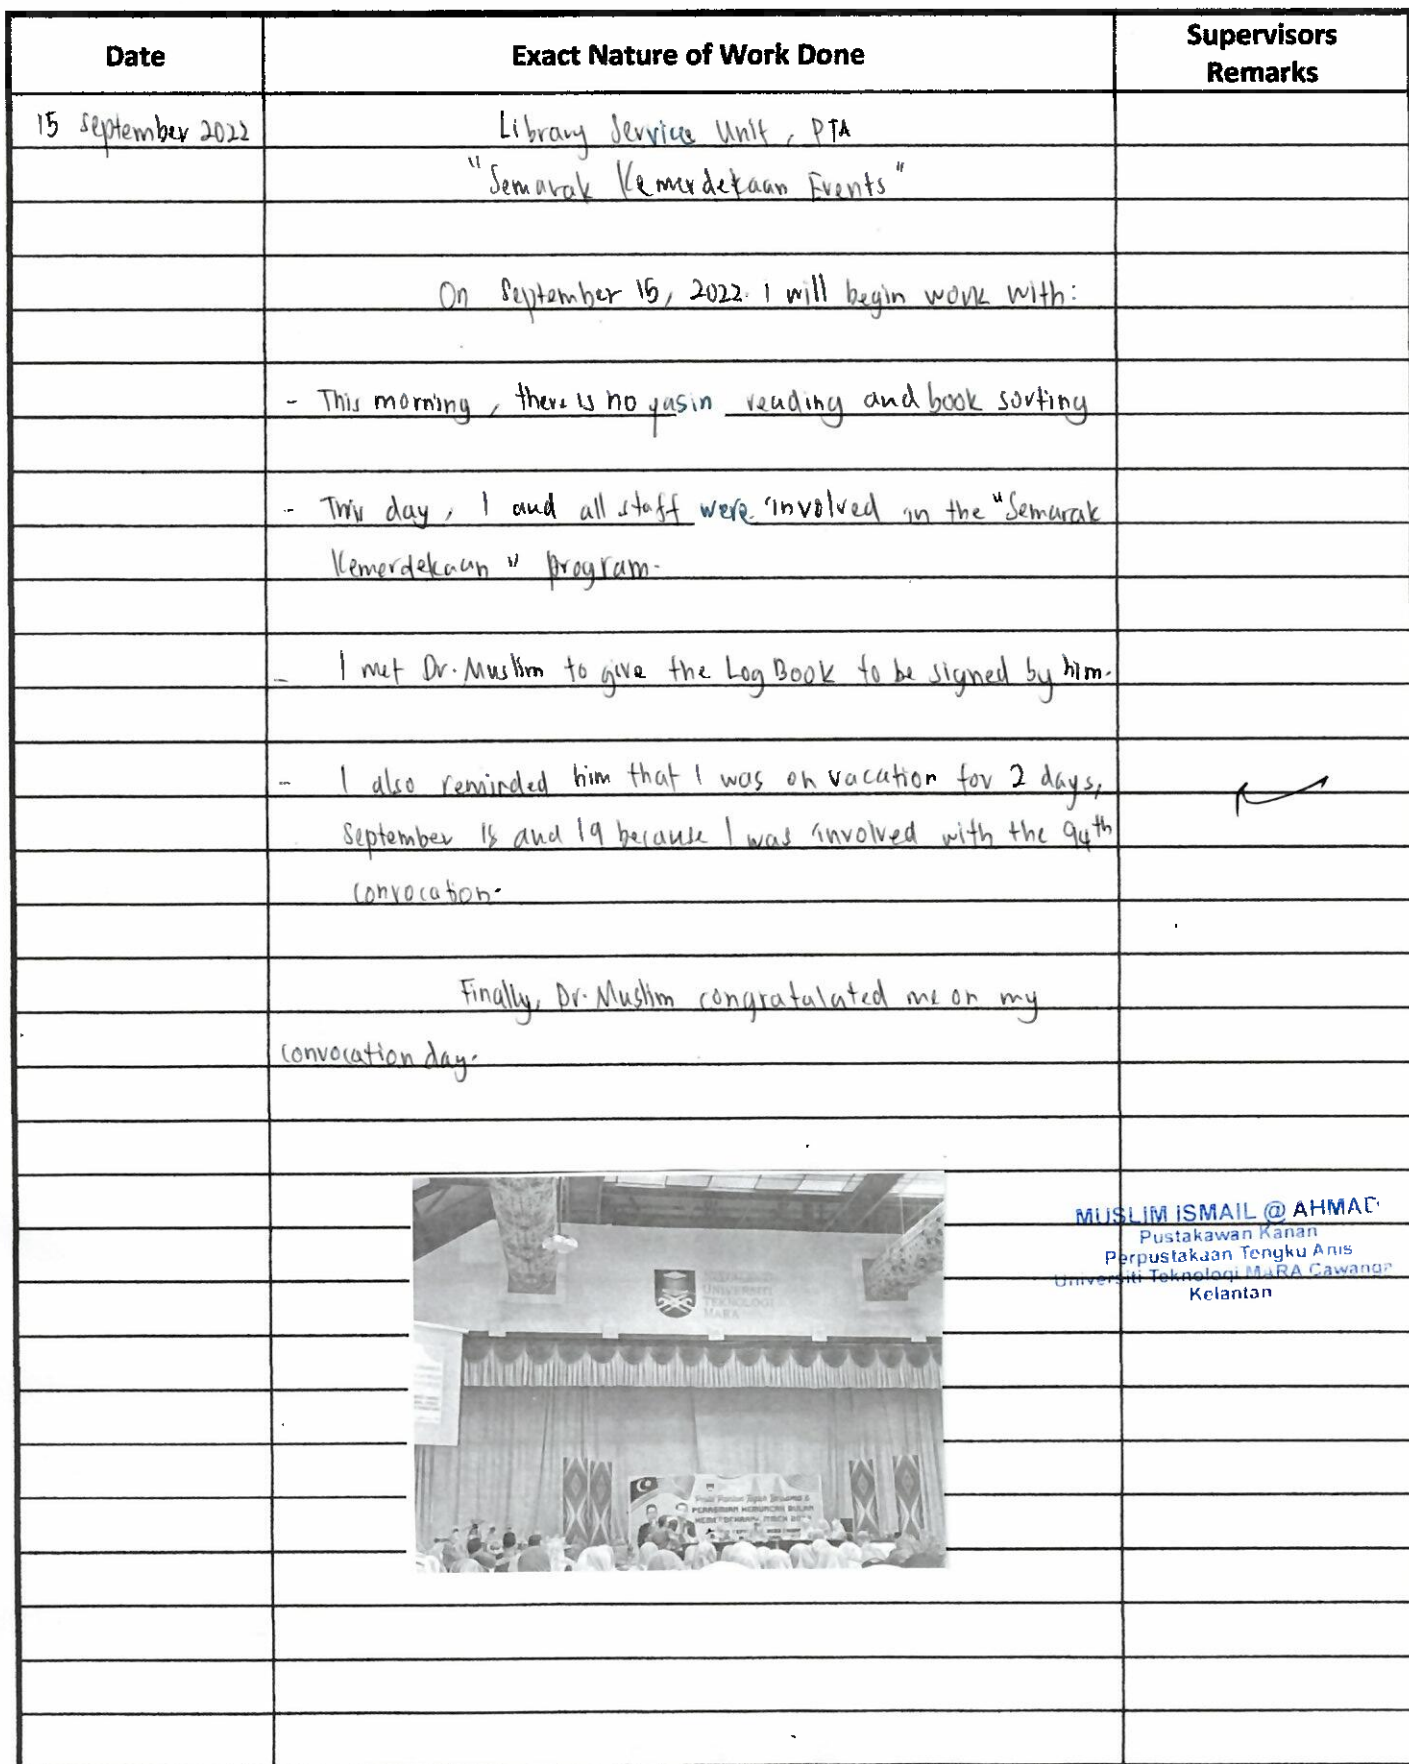 Date
Exact Nature of Work Done
Supervisors
Remarks
15 September 2022
Library Service Unit, PTA
"Semarak Kemerdekaan Events"
On September 15, 2022. I will begin work with:
- This morning, there is no yasin reading and book sorting
- This day, I and all staff were involved in the "Semarak
Kemerdekaan" program.
- I met Dr. Muslim to give the Log Book to be signed by him.
- I also reminded him that I was on vacation for 2 days,
September 18 and 19 because I was involved with the 94th
convocation.
Finally, Dr. Muslim congratulated me on my
convocation day.
MUSLIM ISMAIL @ AHMAD
Pustakawan Kanan
Perpustakaan Tengku Anis
Universiti Teknologi MARA Cawanga
Kelantan
UNIVERSITI
TEKNOLOGI
MARA